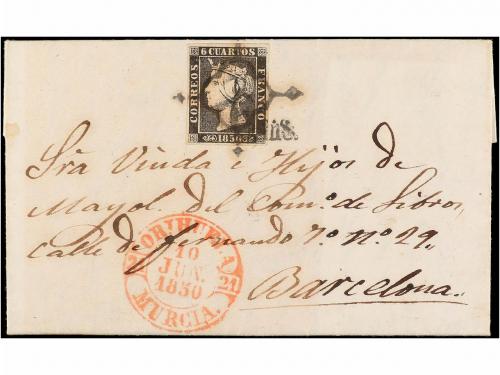 6 CUARTOS
CORREOS
FRANCO
1850
Sra Viuda é Hijos de
Mayol. del Comº. de Libros,
calle de fernando 7º nº. 29„
ORIHUELA
10
JUN.
1850
21
MURCIA.
Barcelona.